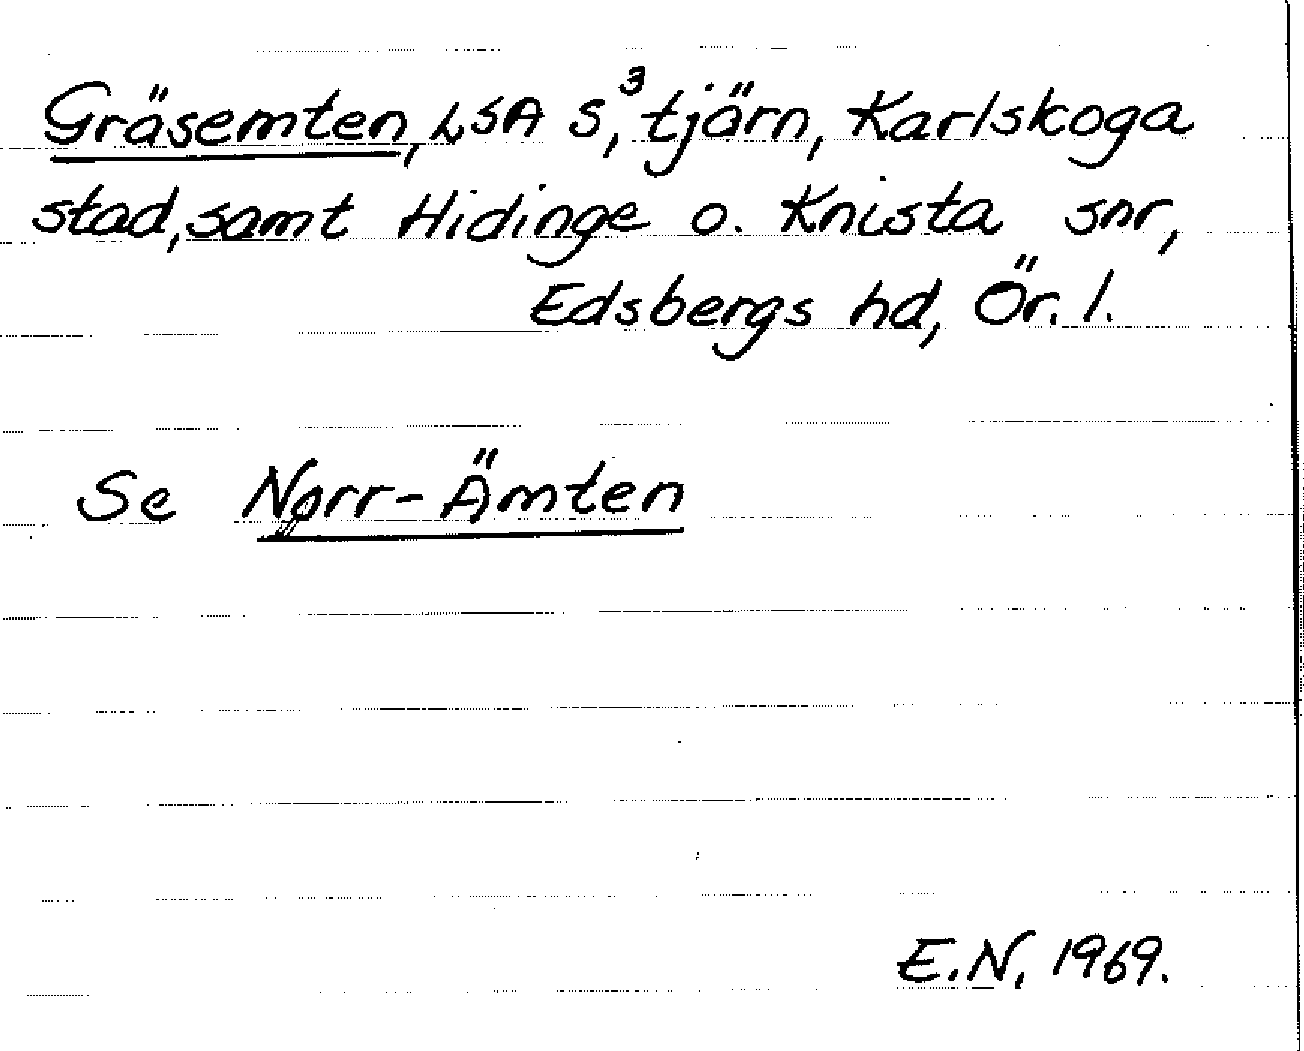 Gräsemten, LSA S,³ tjärn, Karlskoga
stad, samt Hidinge o. Knista snr,
Edsbergs hd, Ör. l.
Se Norr-Ämten
E.N. 1969.